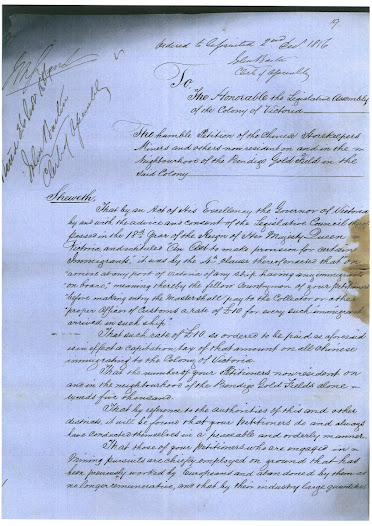 9
Ordered to be printed 2nd Dec 1856
John Barker
Clerk of Assembly
John Barker
Clerk of Assembly
To
The Honorable the Legislative Assembly
of the Colony of Victoria
The humble Petition of the Chinese Storekeepers
Miners and others now resident on and in the
Neighbourhood of the Bendigo Gold Field in the
said Colony
Sheweth,
That by an Act of His Excellency the Governor of Victoria
by and with the advice and consent of the Legislative Council
passed in the 18th Year of the Reign of Her Majesty Queen
Victoria, and intituled "An Act to make provision for certain
Immigrants", it was by the 4th clause thereof enacted that on
"arrival at any port of Victoria of any ship having any immigrants
"on board," meaning thereby the fellow Countrymen of your petitioners
"before making entry the Master shall pay to the Collector or other
"proper officer of Customs a rate of £10 for every such immigrant
arrived in such ship."
That such rate of £10 so ordered to be paid as aforesaid
is in effect a capitation tax of that amount on all Chinese
immigrating to the Colony of Victoria
That the number of your Petitioners now resident on
and in the neighbourhood of the Bendigo Gold Fields alone
exceeds five thousand.
That by reference to the authorities of this and other
districts, it will be found that your Petitioners do and always
have conducted themselves in a peaceable and orderly manner.
That those of your Petitioners who are engaged in
Mining pursuits are chiefly employed on ground that had
been previously worked by Europeans and abandoned by them as
no longer remunerative, and that by their industry large quantities